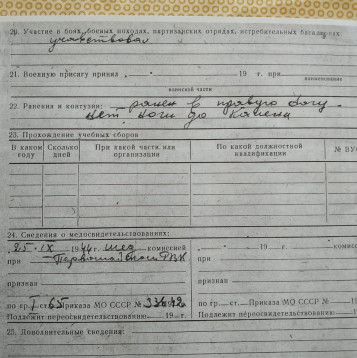 20. Участие в боях, боевых походах, партизанских отрядах, истребительных батальонах:
участвовал
21. Военную присягу принял « » 19 г. при
наименование
воинской части
22. Ранения и контузии: ранен в правую ногу.
нет ноги до колена
23. Прохождение учебных сборов
В каком году
Сколько дней
При какой части или организации
По какой должностной квалификации
№ ВУС
24. Сведения о медосвидетельствованиях:
25. IX 19 г. комиссией
« » 19 г. комисс
при РВК
при
признан
признан
по гр. I ст. 65 Приказа МО СССР № 336
по гр. ст. Приказа МО СССР №
Подлежит переосвидетельствованию 19 г.
Подлежит переосвидетельствованию
25. Дополнительные сведения: